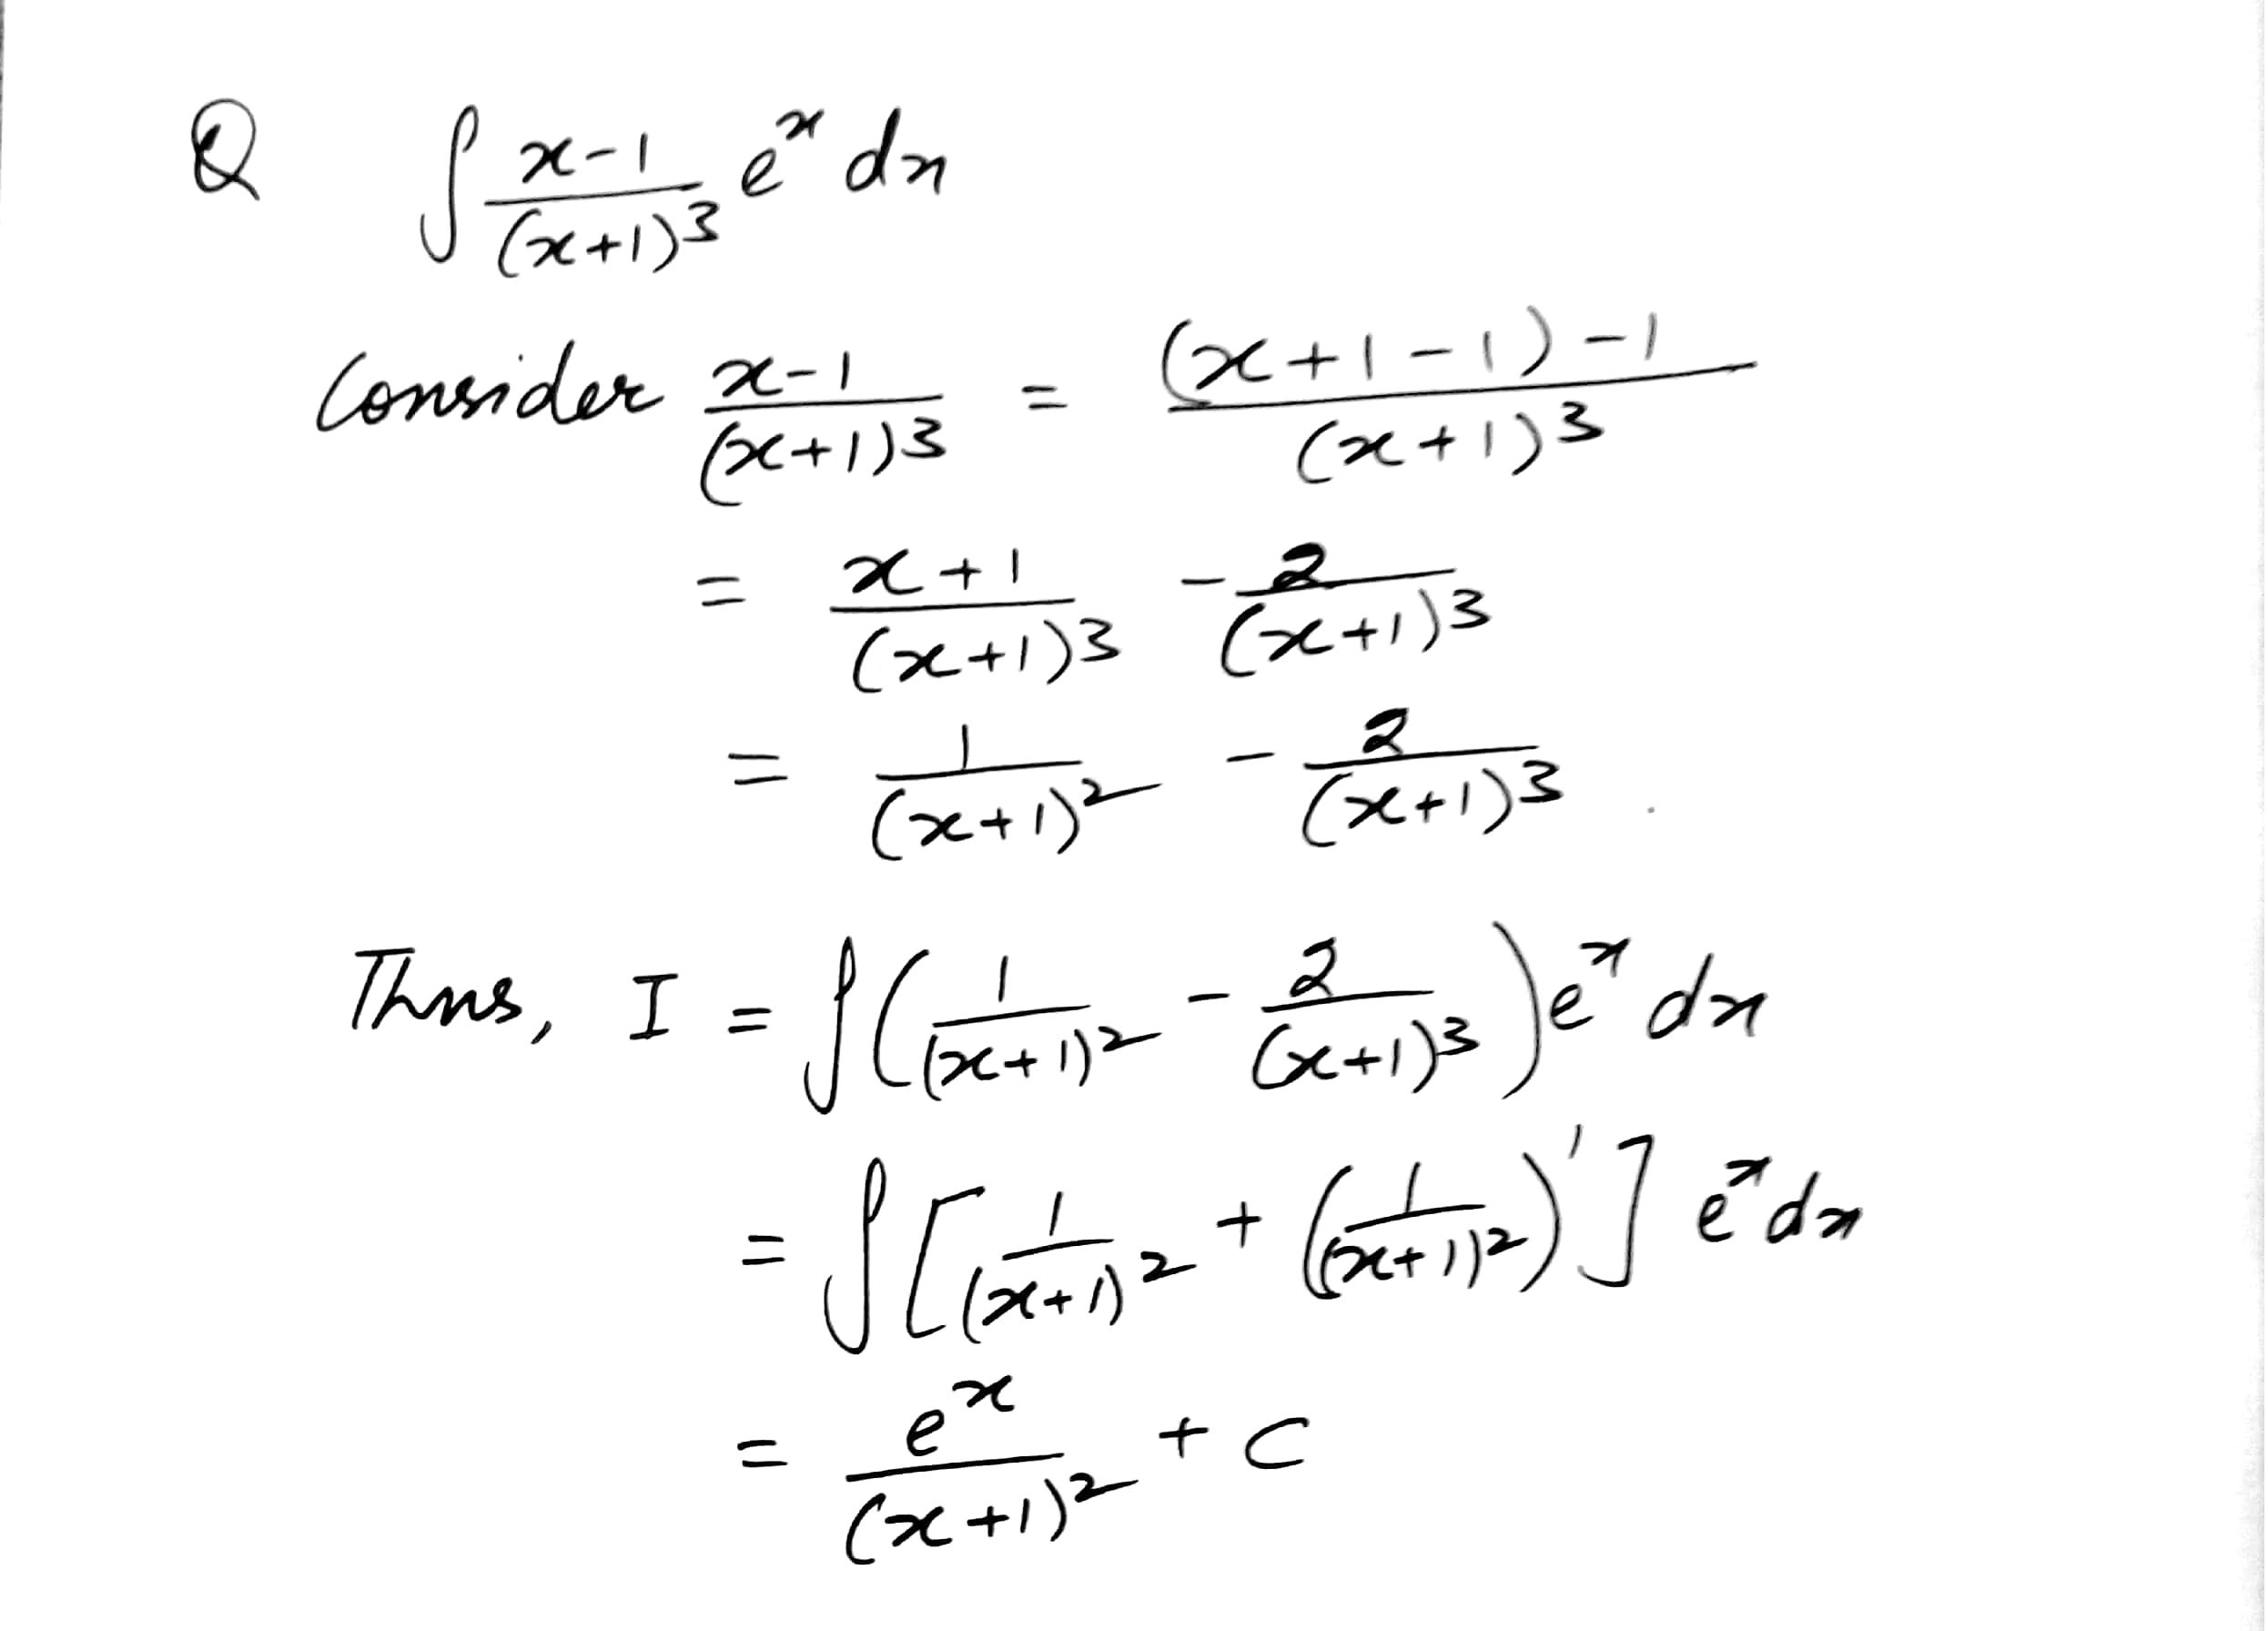 Q ∫ \frac{x-1}{(x+1)^3} e^x dx
Consider \frac{x-1}{(x+1)^3} = \frac{(x+1-1)-1}{(x+1)^3}
= \frac{x+1}{(x+1)^3} - \frac{2}{(x+1)^3}
= \frac{1}{(x+1)^2} - \frac{2}{(x+1)^3} .
Thus, I = ∫ ( \frac{1}{(x+1)^2} - \frac{2}{(x+1)^3} ) e^x dx
= ∫ [ \frac{1}{(x+1)^2} + ( \frac{1}{(x+1)^2} )' ] e^x dx
= \frac{e^x}{(x+1)^2} + C